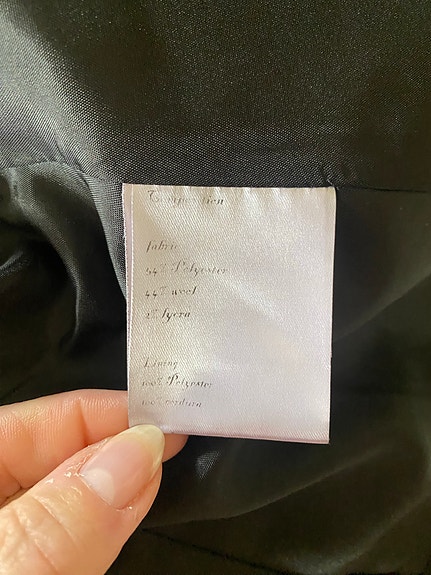 Composition
fabric
54% Polyester
44% wool
2% lycra
Lining
100% Polyester
100%